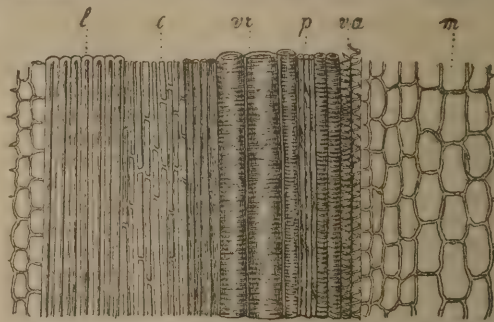 l c vr p va m